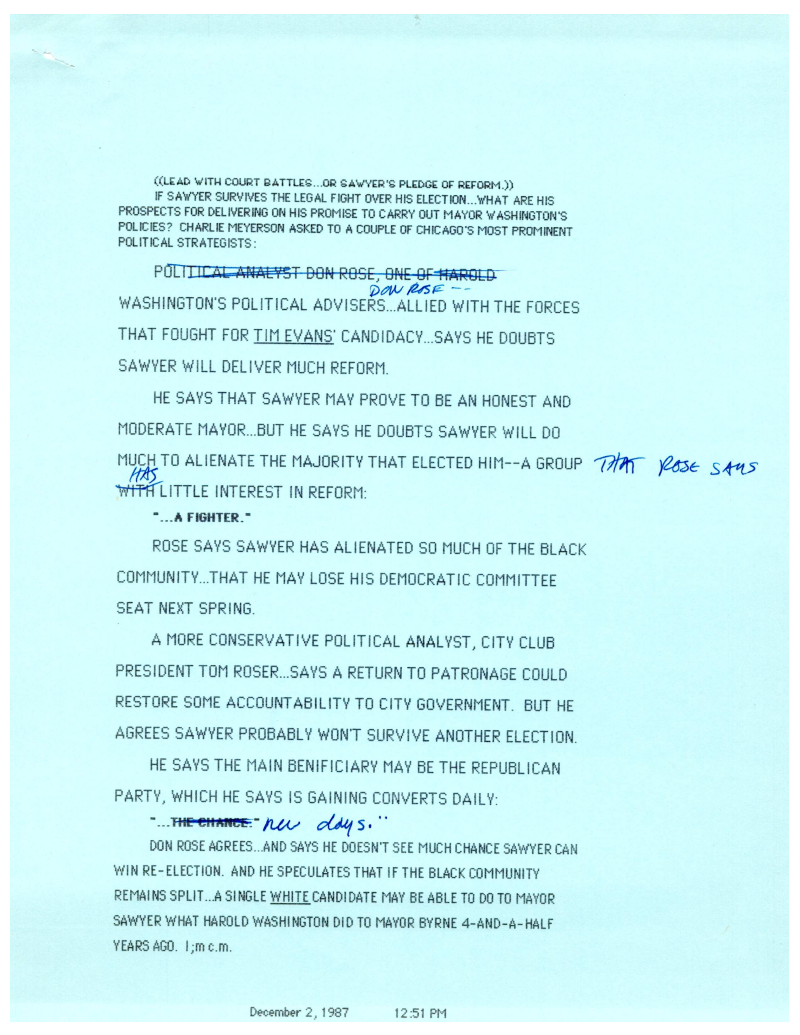 ((LEAD WITH COURT BATTLES...OR SAWYER'S PLEDGE OF REFORM.))
IF SAWYER SURVIVES THE LEGAL FIGHT OVER HIS ELECTION...WHAT ARE HIS
PROSPECTS FOR DELIVERING ON HIS PROMISE TO CARRY OUT MAYOR WASHINGTON'S
POLICIES? CHARLIE MEYERSON ASKED TO A COUPLE OF CHICAGO'S MOST PROMINENT
POLITICAL STRATEGISTS:
POLITICAL ANALYST DON ROSE, ONE OF HAROLD
DON ROSE --
WASHINGTON'S POLITICAL ADVISERS...ALLIED WITH THE FORCES
THAT FOUGHT FOR TIM EVANS' CANDIDACY...SAYS HE DOUBTS
SAWYER WILL DELIVER MUCH REFORM.
HE SAYS THAT SAWYER MAY PROVE TO BE AN HONEST AND
MODERATE MAYOR...BUT HE SAYS HE DOUBTS SAWYER WILL DO
MUCH TO ALIENATE THE MAJORITY THAT ELECTED HIM--A GROUP THAT ROSE SAYS
HAS
WITH LITTLE INTEREST IN REFORM:
"...A FIGHTER."
ROSE SAYS SAWYER HAS ALIENATED SO MUCH OF THE BLACK
COMMUNITY...THAT HE MAY LOSE HIS DEMOCRATIC COMMITTEE
SEAT NEXT SPRING.
A MORE CONSERVATIVE POLITICAL ANALYST, CITY CLUB
PRESIDENT TOM ROSER...SAYS A RETURN TO PATRONAGE COULD
RESTORE SOME ACCOUNTABILITY TO CITY GOVERNMENT. BUT HE
AGREES SAWYER PROBABLY WON'T SURVIVE ANOTHER ELECTION.
HE SAYS THE MAIN BENIFICIARY MAY BE THE REPUBLICAN
PARTY, WHICH HE SAYS IS GAINING CONVERTS DAILY:
"...THE CHANCE." new days."
DON ROSE AGREES...AND SAYS HE DOESN'T SEE MUCH CHANCE SAWYER CAN
WIN RE-ELECTION. AND HE SPECULATES THAT IF THE BLACK COMMUNITY
REMAINS SPLIT...A SINGLE WHITE CANDIDATE MAY BE ABLE TO DO TO MAYOR
SAWYER WHAT HAROLD WASHINGTON DID TO MAYOR BYRNE 4-AND-A-HALF
YEARS AGO. I;m c.m.
December 2, 1987 12:51 PM